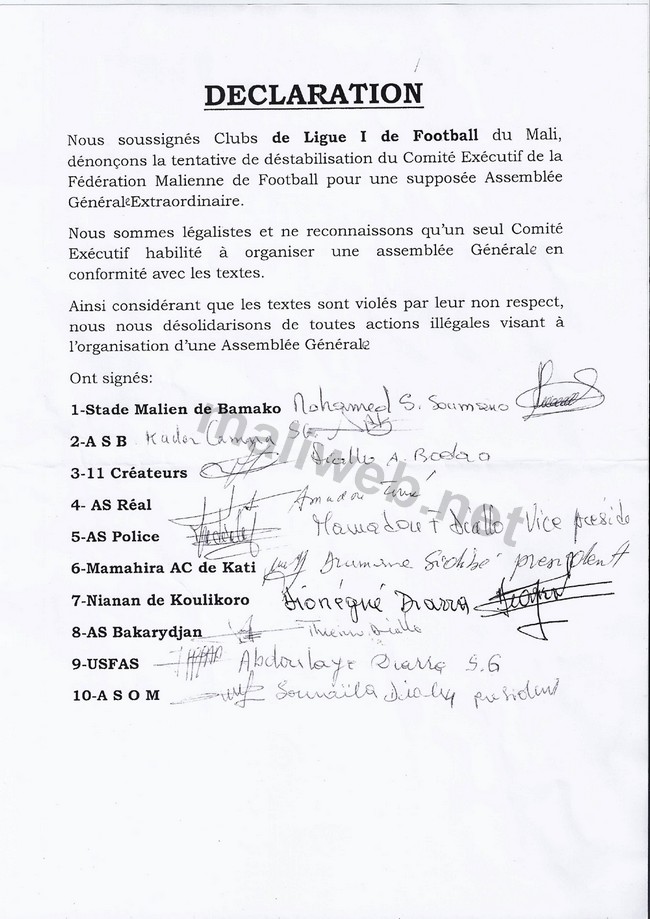 DECLARATION
Nous soussignés Clubs de Ligue I de Football du Mali,
dénonçons la tentative de déstabilisation du Comité Exécutif de la
Fédération Malienne de Football pour une supposée Assemblée
GénéraleExtraordinaire.
Nous sommes légalistes et ne reconnaissons qu'un seul Comité
Exécutif habilité à organiser une assemblée Générale en
conformité avec les textes.
Ainsi considérant que les textes sont violés par leur non respect,
nous nous désolidarisons de toutes actions illégales visant à
l'organisation d'une Assemblée Générale
Ont signés:
1-Stade Malien de Bamako Mohamed S. Soumano
2-A S B SG
3-11 Créateurs Diallo A.
4- AS Réal Amadou
5-AS Police Mamadou T Diallo Vice préside
6-Mamahira AC de Kati Dramane président
7-Nianan de Koulikoro Dionégué Diarra
8-AS Bakarydjan Diallo
9-USFAS Abdoulaye Diarra S.G
10-A S O M Soumaïla président
maliweb.net